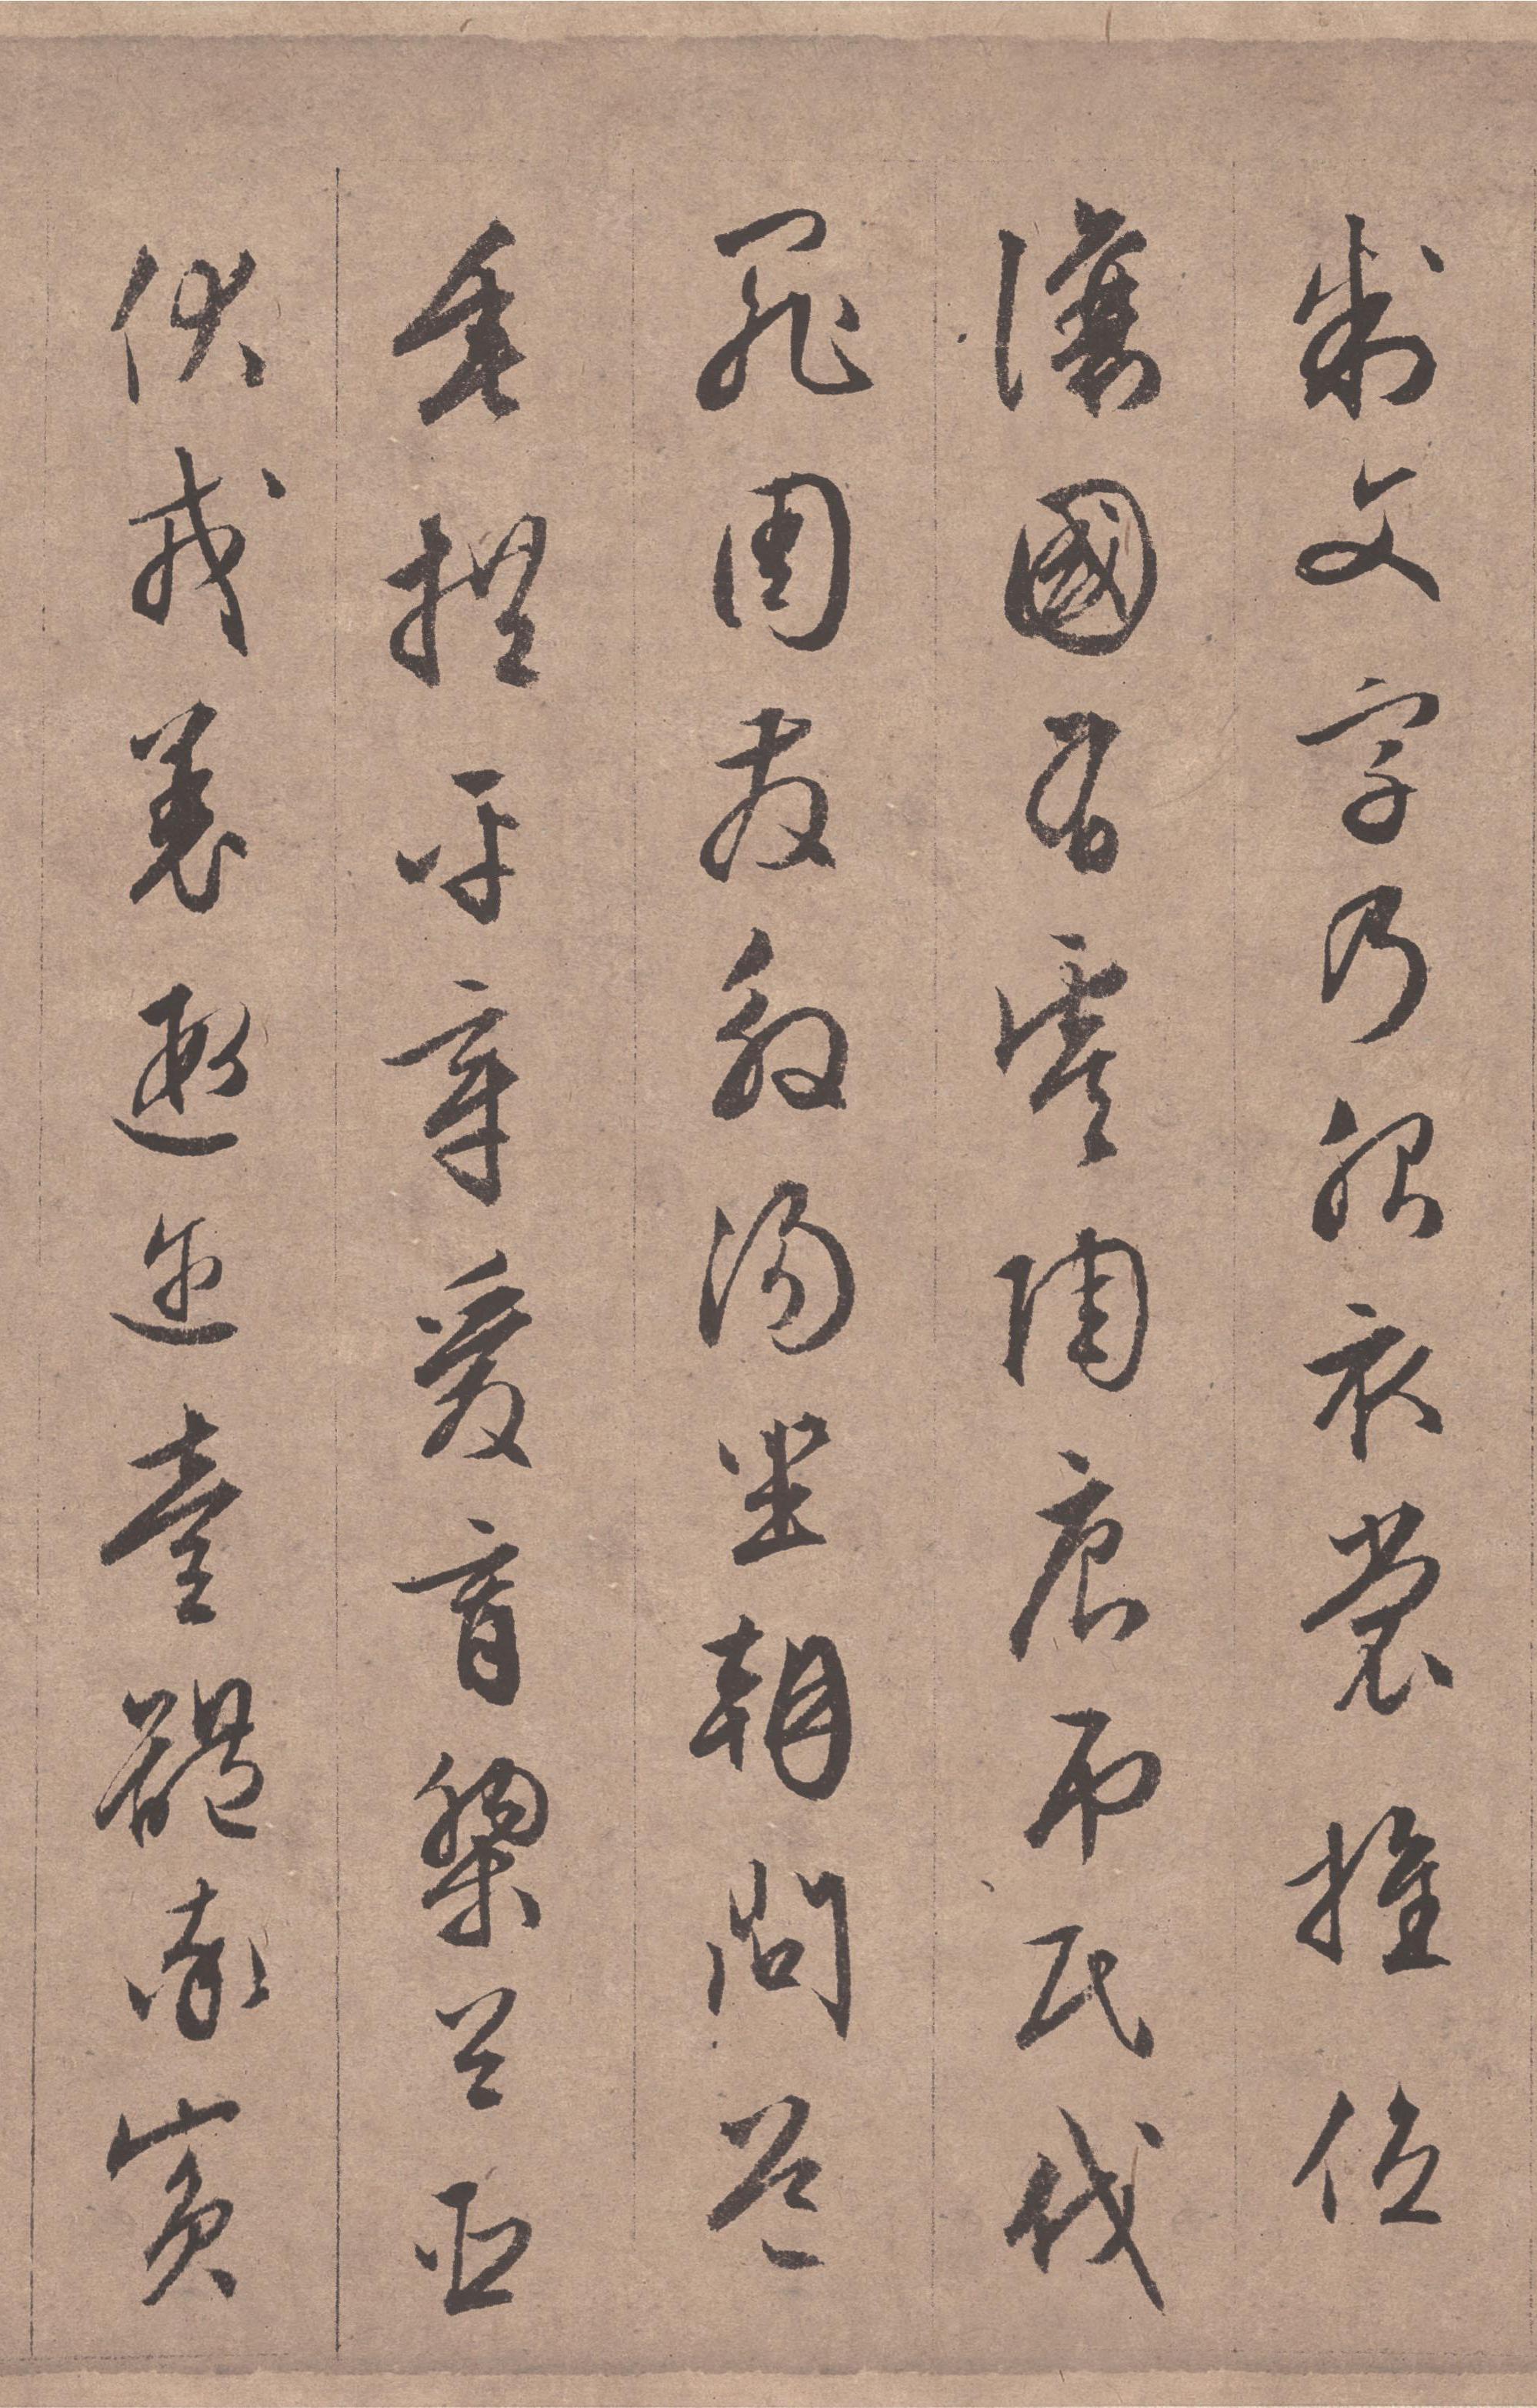 制文字乃服衣裳推位
讓國有虞陶唐弔民伐
罪周發殷湯坐朝問道
垂拱平章愛育黎首臣
伏戎羌遐迩壹體率賓